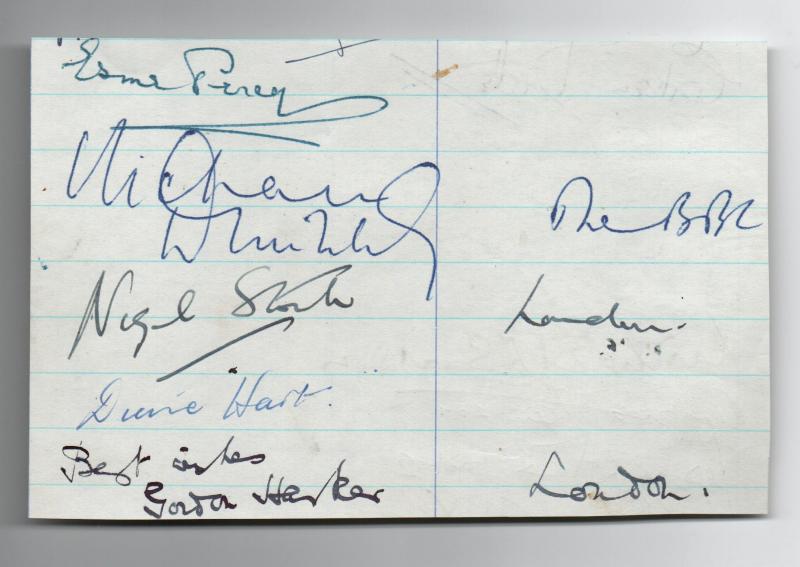 Esme Percy
Richard
The BBC
Nigel Stock
London.
Diane Hart.
Best wishes
Gordon Harker
London.